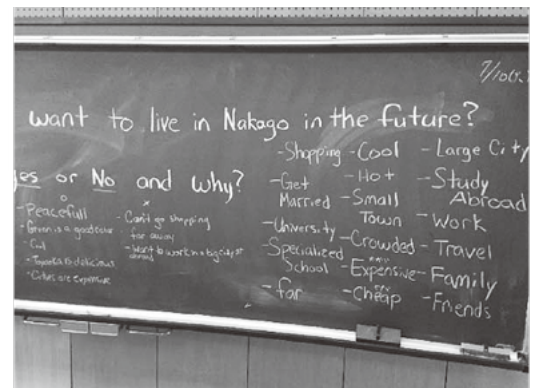 7/10
want to live in Nakago in the future?
es or No and why?
-Peacefull
-Green is a good colour
-Cool
is delicious
-Cities are expensive
×
-Can't go shopping
far away
-Want to work in a big city or
abroad
-Shopping
-Get
Married
-University
-Specialized
School
-far
-Cool
-Hot
-Small
Town
-Crowded
-Expensive
-Cheap
-Large City
-Study
Abroad
-Work
-Travel
-Family
-Friends